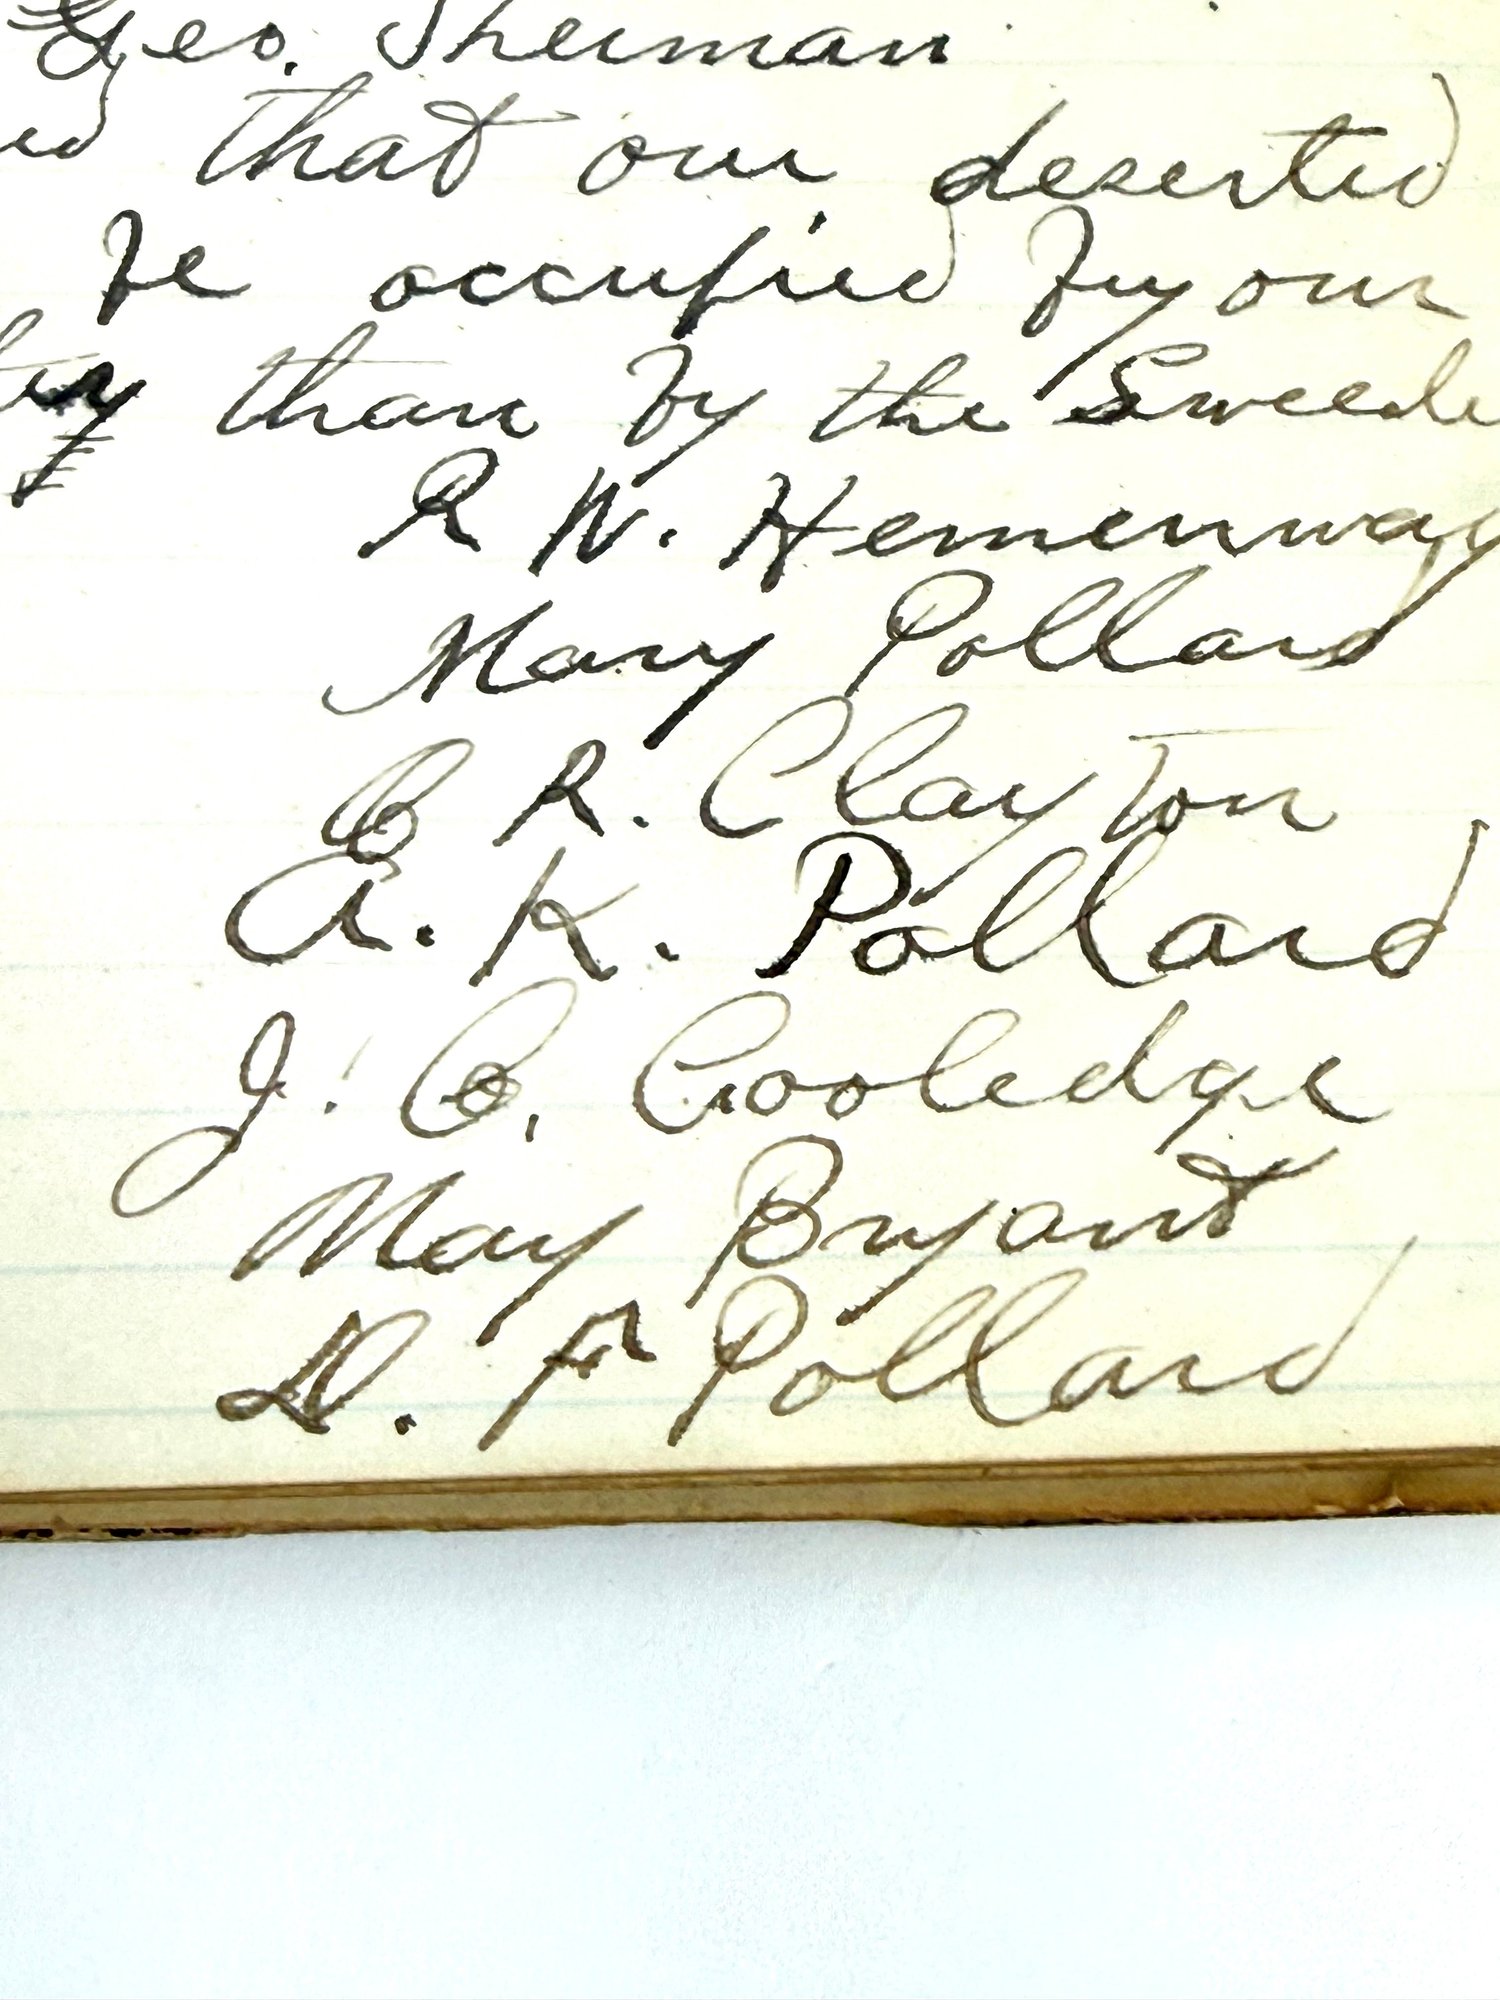 Geo. Sherman
that our deserted
be occupied by our
than by the Sweede
R W. Hemenway
Mary Pollard
C R. Clayton
A. K. Pollard
J. C. Cooledge
May Bryant
D. F Pollard